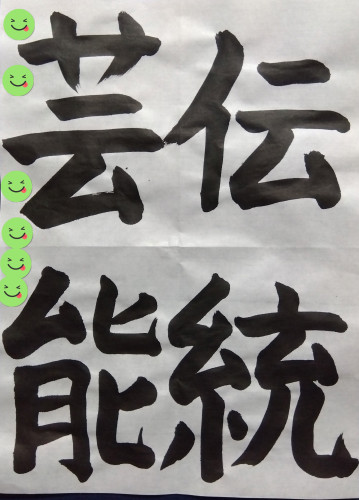 伝統
芸能